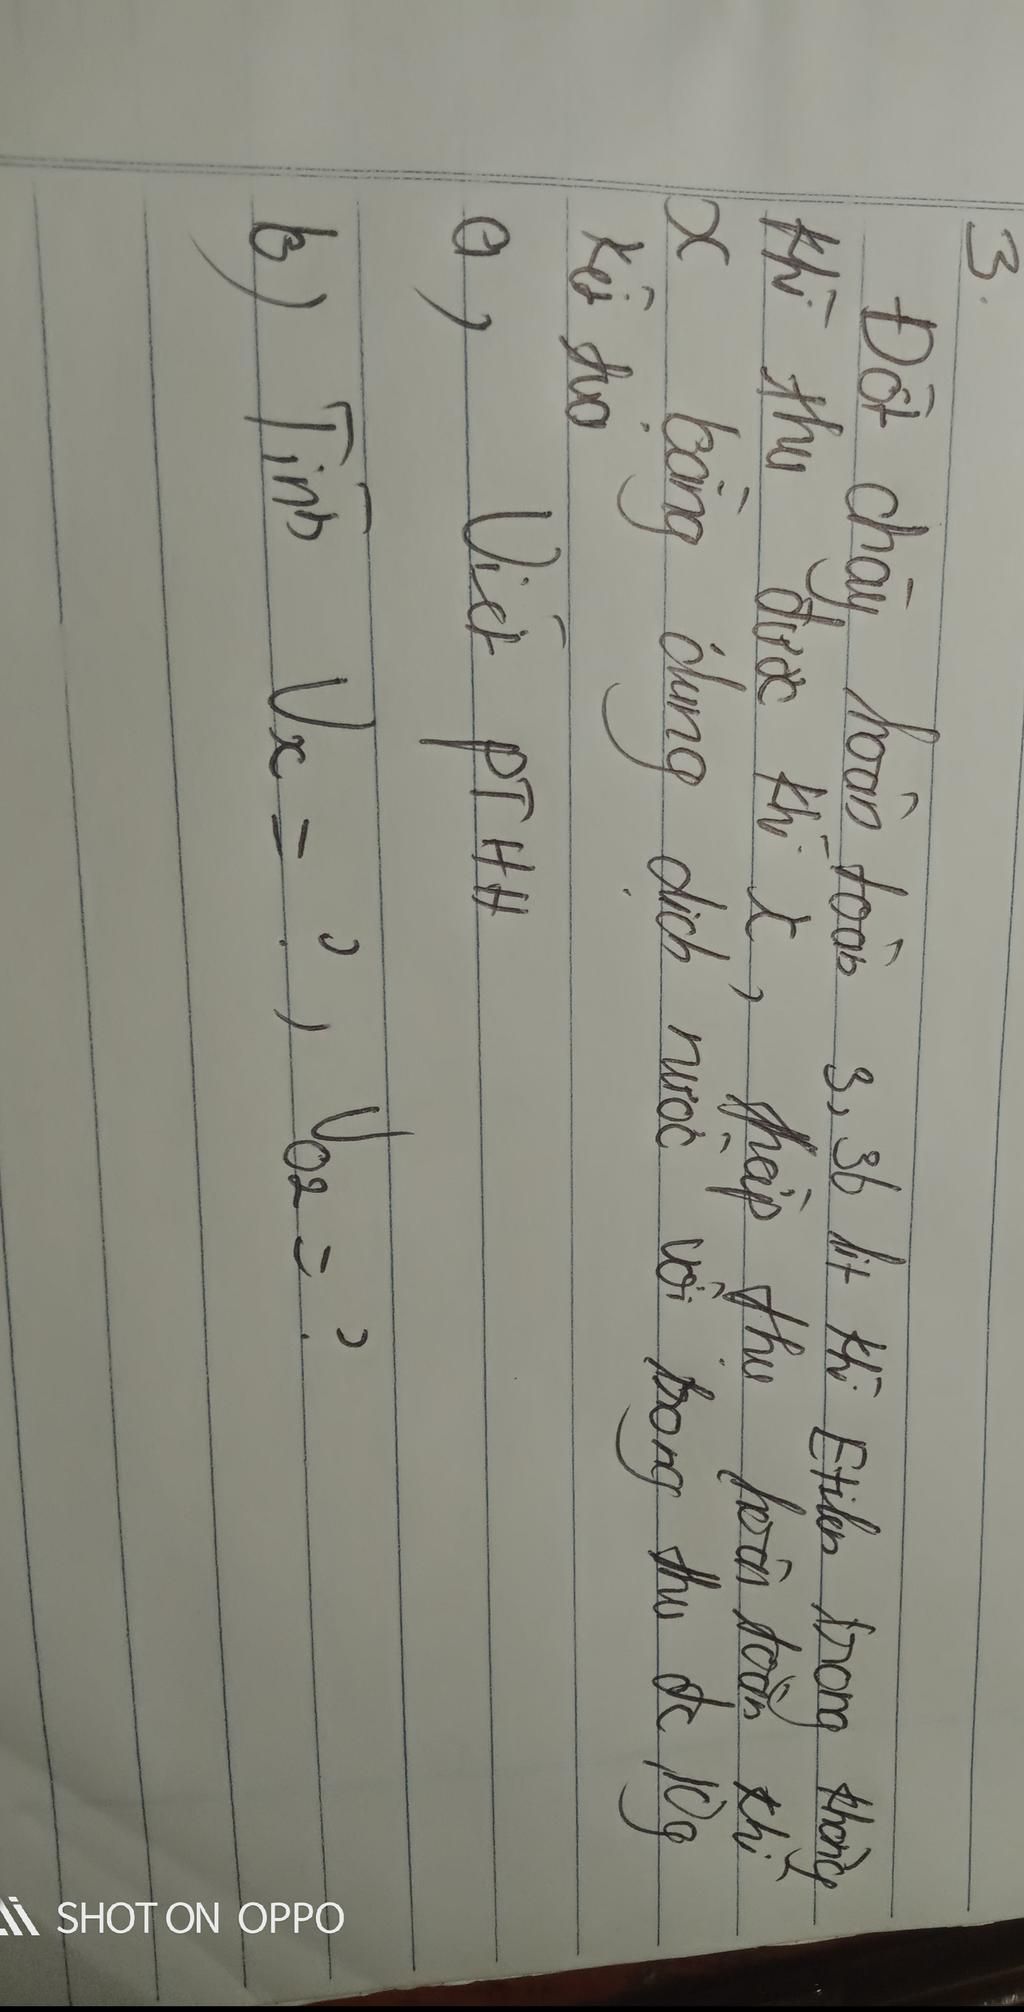 3.
Đốt cháy hoàn toàn 3,36 lít khí Etilen trong không
khí thu được khí X, thấp thu hoàn toàn khí
X bằng dung dịch nước vôi trong thu đc 10g
kết tủa
a, Viết PTHH
b) Tính Vx = ?, VO2 = ?
SHOT ON OPPO